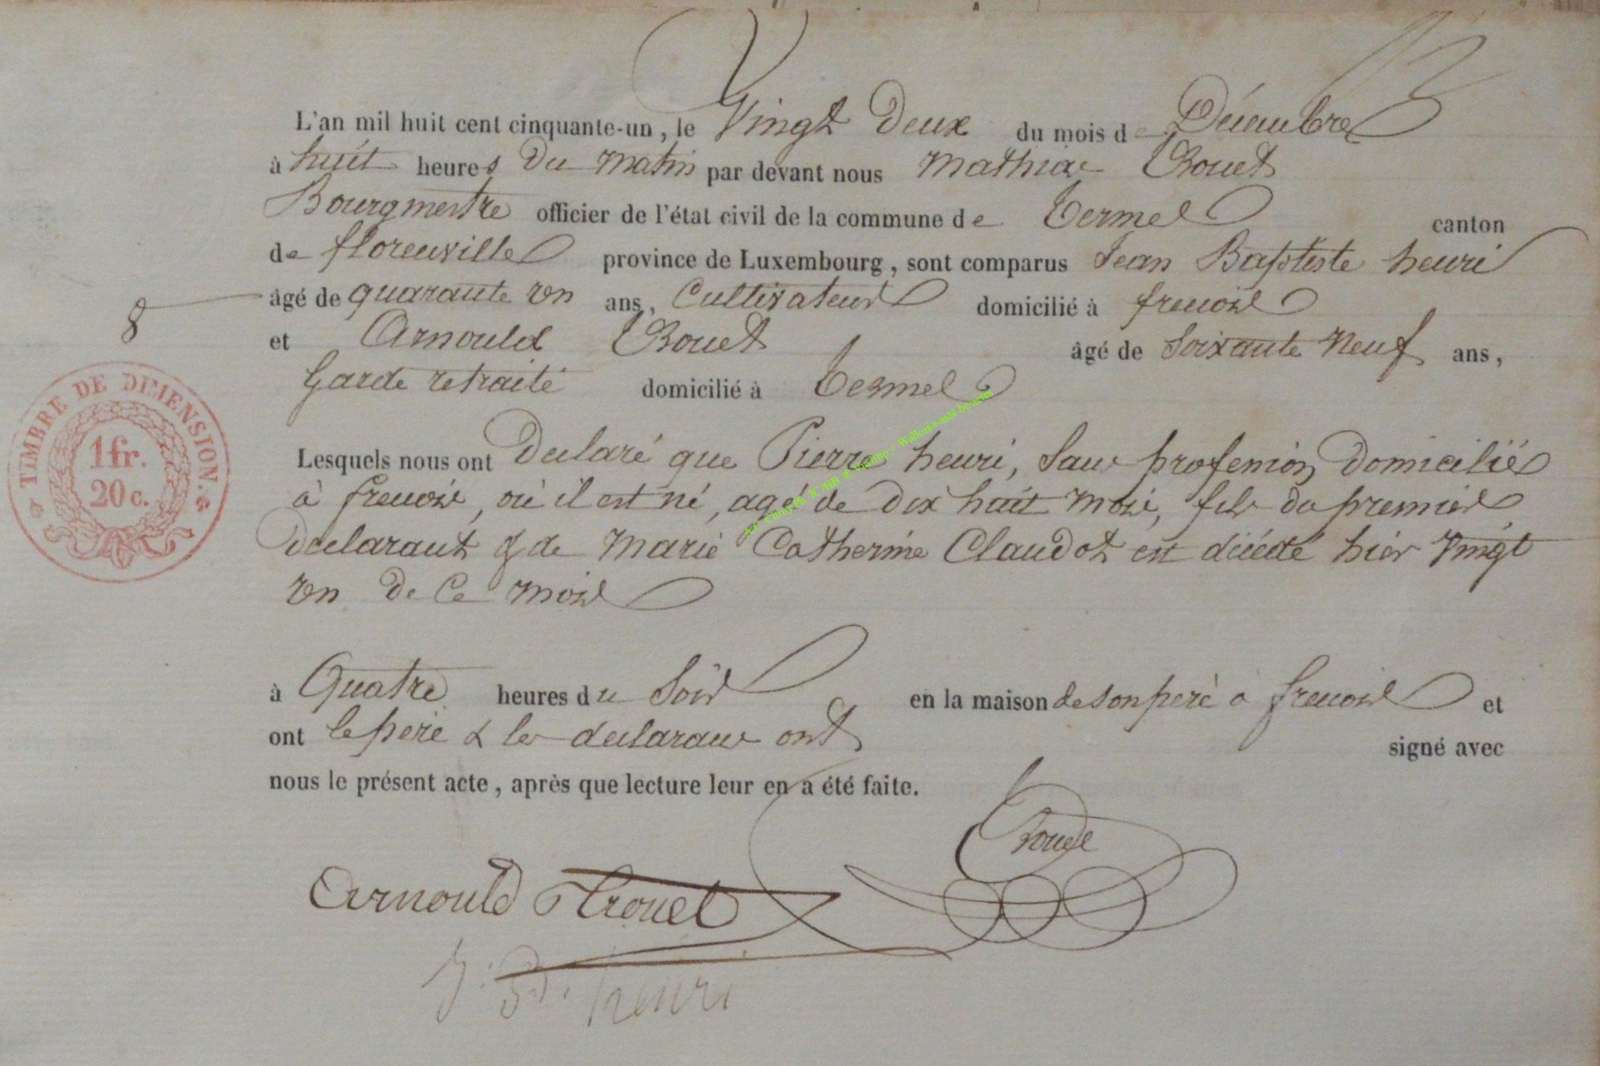 L'an mil huit cent cinquante-un, le Vingt Deux du mois de Décembre
à huit heures Du Matin par devant nous Mathias Trouet
Bourgmestre officier de l'état civil de la commune de Termes canton
de florenville province de Luxembourg, sont comparus Jean Baptiste henri
âgé de quarante un ans, Cultivateur domicilié à frenois
8
et Arnould Trouet âgé de Soixante Neuf ans,
Garde retraité domicilié à Termes
TIMBRE DE DIMENSION.
1 fr.
20 c.
Lesquels nous ont Déclaré que Pierre henri, Sans profession, Domicilié
à frenois, où il est né, agé de dix huit mois, fils du premier
déclarant & de Marie Catherine Claudot est décédé hier Vingt
un de Ce mois
à Quatre heures du Soir en la maison de son pere à frenois et
ont le pere & les déclarans ont signé avec
nous le présent acte, après que lecture leur en a été faite.
Trouet
Arnould Trouet
J. Bte henri